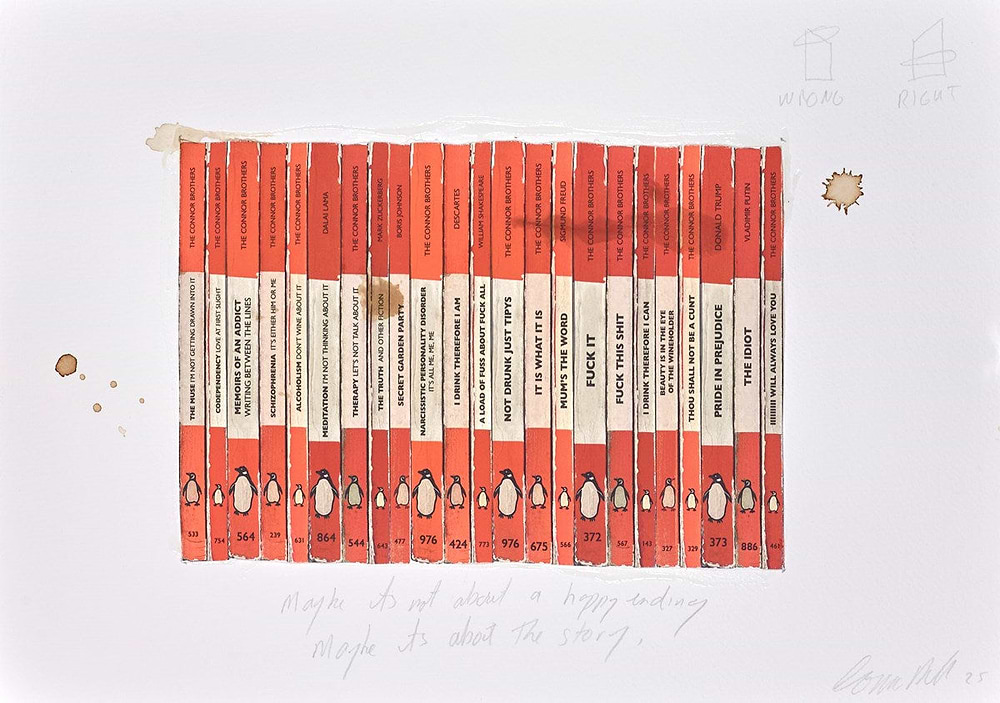 WRONG RIGHT
THE CONNOR BROTHERS
THE MUSE I'M NOT GETTING DRAWN INTO IT
533
THE CONNOR BROTHERS
CODEPENDENCY LOVE AT FIRST SLIGHT
754
THE CONNOR BROTHERS
MEMOIRS OF AN ADDICT
WRITING BETWEEN THE LINES
564
THE CONNOR BROTHERS
SCHIZOPHRENIA IT'S EITHER HIM OR ME
239
THE CONNOR BROTHERS
ALCOHOLISM DON'T WINE ABOUT IT
631
DALAI LAMA
MEDITATION I'M NOT THINKING ABOUT IT
864
THE CONNOR BROTHERS
THERAPY LET'S NOT TALK ABOUT IT
544
MARK ZUCKERBERG
THE TRUTH AND OTHER FICTION
643
BORIS JOHNSON
SECRET GARDEN PARTY
477
THE CONNOR BROTHERS
NARCISSISTIC PERSONALITY DISORDER
IT'S ALL ME, ME, ME
976
DESCARTES
I DRINK THEREFORE I AM
424
WILLIAM SHAKESPEARE
A LOAD OF FUSS ABOUT FUCK ALL
773
THE CONNOR BROTHERS
NOT DRUNK JUST TIPYS
976
THE CONNOR BROTHERS
IT IS WHAT IT IS
675
SIGMUND FREUD
MUM'S THE WORD
566
THE CONNOR BROTHERS
FUCK IT
372
THE CONNOR BROTHERS
FUCK THIS SHIT
567
THE CONNOR BROTHERS
I DRINK THEREFORE I CAN
143
THE CONNOR BROTHERS
BEAUTY IS IN THE EYE
OF THE WINEHOLDER
327
THE CONNOR BROTHERS
THOU SHALL NOT BE A CUNT
329
DONALD TRUMP
PRIDE IN PREJUDICE
373
VLADIMIR PUTIN
THE IDIOT
886
THE CONNOR BROTHERS
IIIIIIIII WILL ALWAYS LOVE YOU
Maybe its not about a happy ending
Maybe its about the story.
25